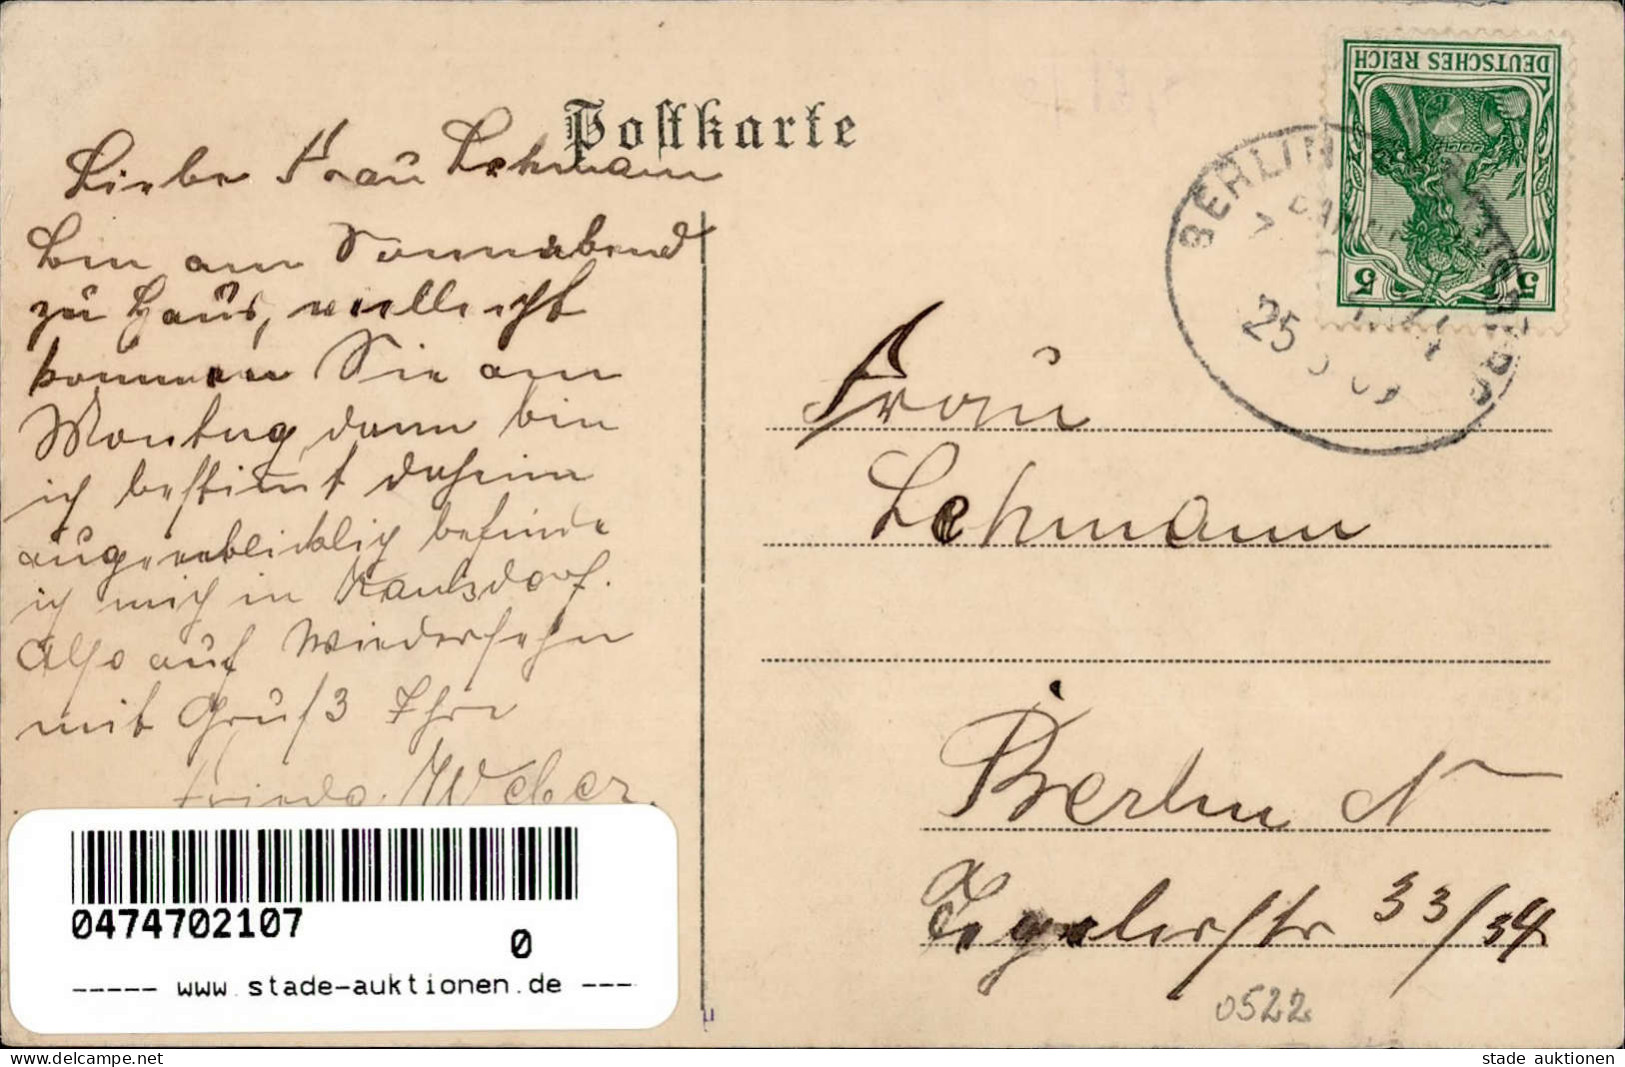 Postkarte
Liebe Frau Lehmann
bin am Sonnabend
zu Haus, vielleicht
kommen Sie am
Montag, dann bin
ich bestimmt daheim
augenblicklich befinde
ich mich in Kaulsdorf.
Also auf Wiedersehn
mit Gruß Ihre
Frieda Weber.
DEUTSCHES REICH
5 5
BERLIN
25
Frau
Lehmann
Berlin N
Tegelerstr 33/34
0522
0474702107
0
----- www.stade-auktionen.de ---
www.stade-auktionen.de
stade auktionen